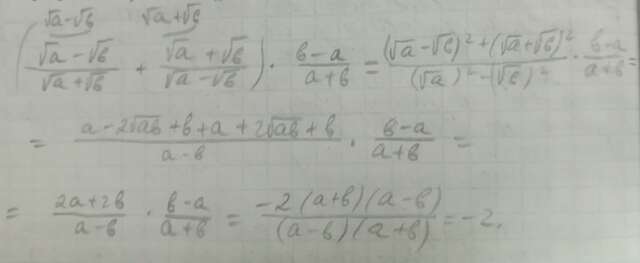 √a-√b √a+√b
(√a - √b / √a + √b + √a + √b / √a - √b) · b - a / a + b = (√a - √b)² + (√a + √b)² / (√a)² - (√b)² · b - a / a + b =
= a - 2√ab + b + a + 2√ab + b / a - b · b - a / a + b =
= 2a + 2b / a - b · b - a / a + b = -2(a + b)(a - b) / (a - b)(a + b) = -2.